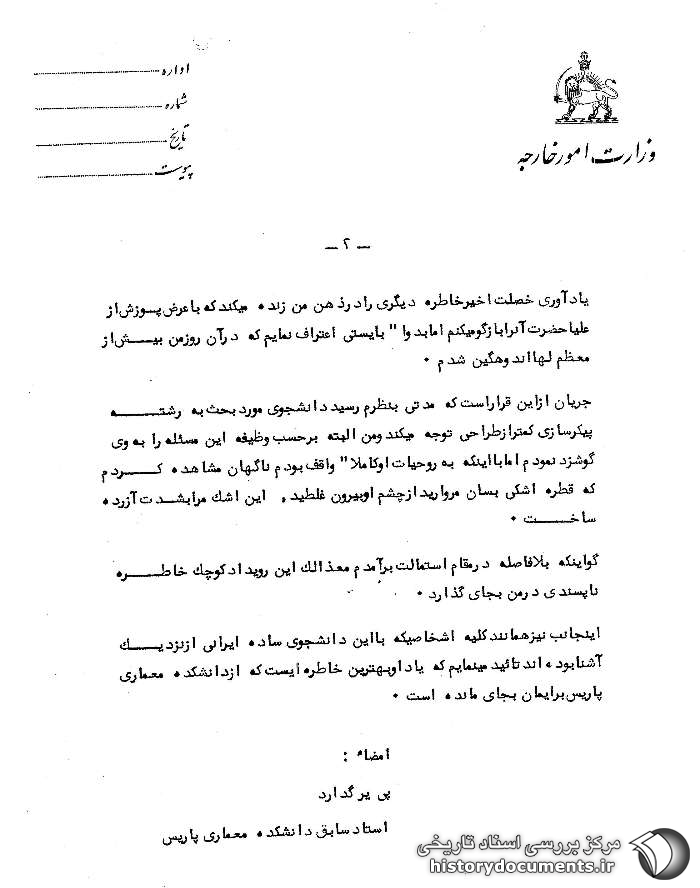 اداره
شماره
تاریخ
پیوست
وزارت امور خارجه
ـ ۲ ـ
یادآوری خصلت اخیر خاطره دیگری را در ذهن من زنده میکند که با عرض پوزش از
علیاحضرت آنرا بازگو میکنم اما بدوا" بایستی اعتراف نمایم که در آن روز من بیش از
معظم لها اندوهگین شدم ۰
جریان از این قرار است که مدتی بنظرم رسید دانشجوی مورد بحث به رشته
پیکرسازی کمتر از طراحی توجه میکند و من البته برحسب وظیفه این مسئله را به وی
گوشزد نمودم اما با اینکه به روحیات او کاملا" واقف بودم ناگهان مشاهده کردم
که قطره اشکی بسان مروارید از چشم او بیرون غلطید، این اشک مرا بشدت آزرده
ساخت ۰
گو اینکه بلافاصله در مقام استمالت برآمدم معذالک این رویداد کوچک خاطره
ناپسندی در من بجای گذارد ۰
اینجانب نیز همانند کلیه اشخاصیکه با این دانشجوی ساده ایرانی از نزدیک
آشنا بوده اند تائید مینمایم که یاد او بهترین خاطره ایست که از دانشکده معماری
پاریس برایمان بجای مانده است ۰
امضاء :
پی یر گدارد
استاد سابق دانشکده معماری پاریس
مرکز بررسی اسناد تاریخی
historydocuments.ir